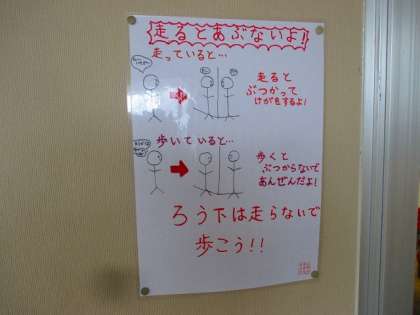 走るとあぶないよ!
走っていると…
走ると
ぶつかって
けがをするよ!
歩いていると…
歩くと
ぶつからないで
あんぜんだよ!
ろう下は走らないで
歩こう!!